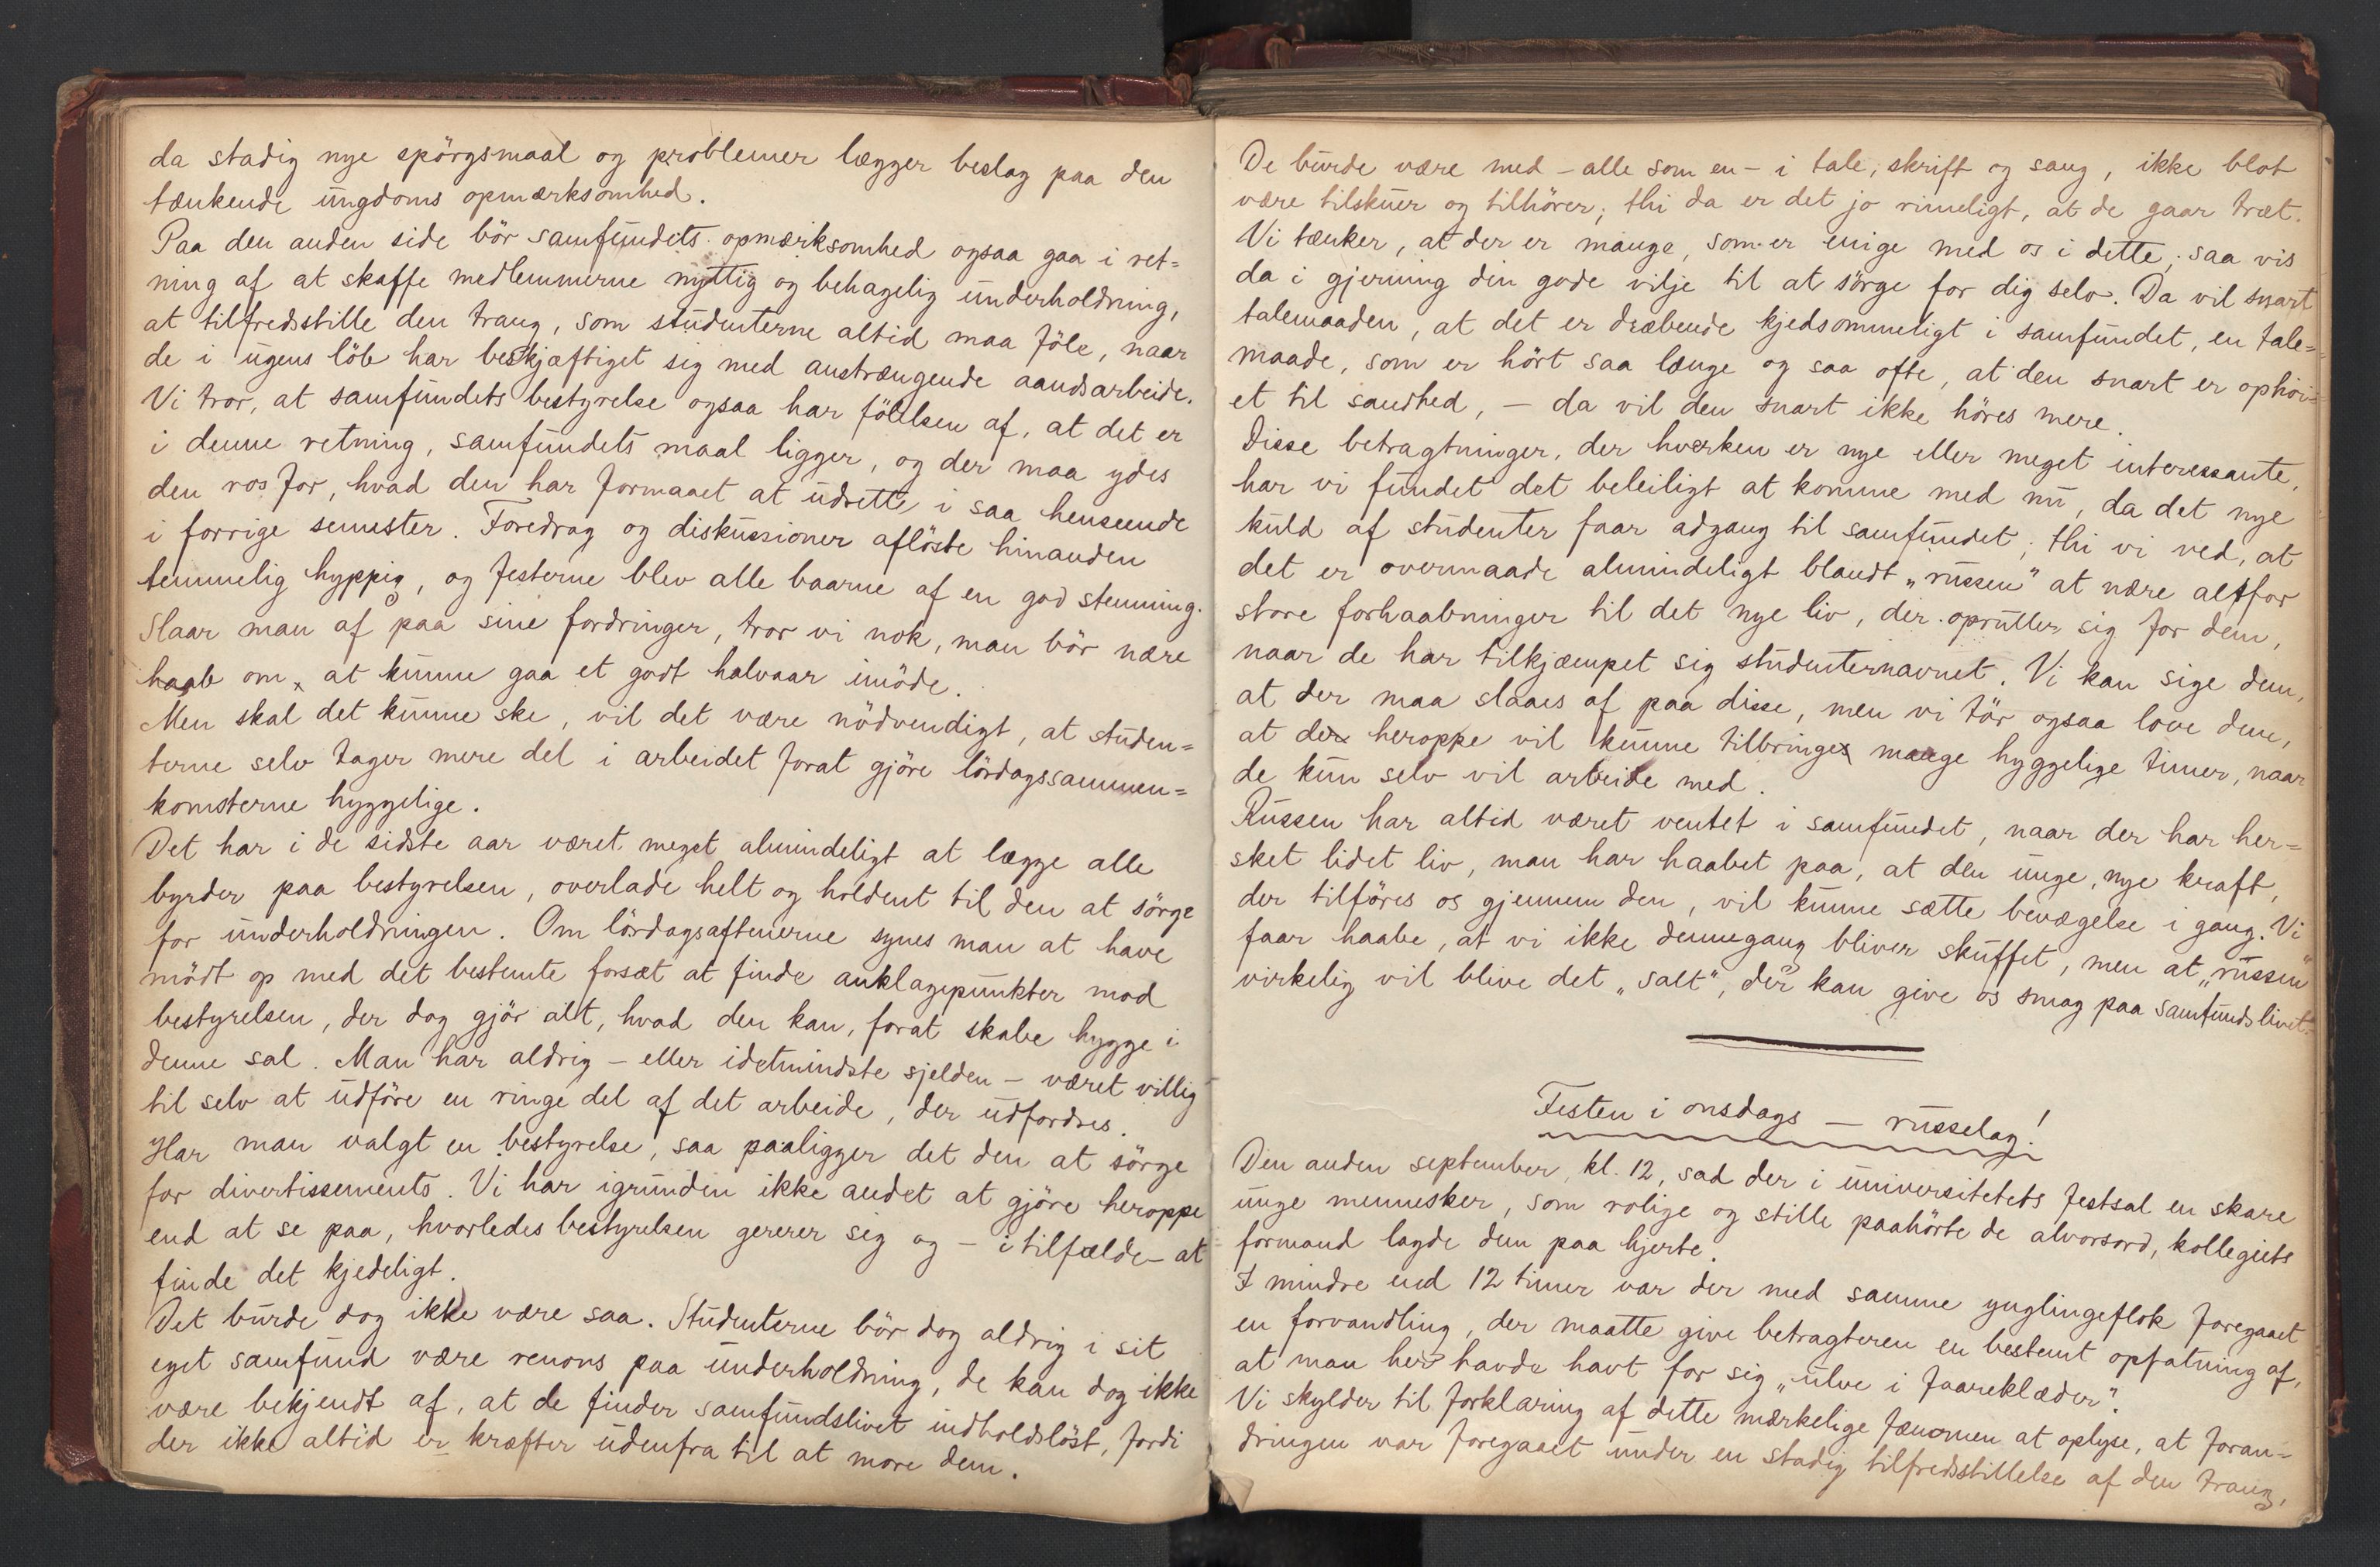 da stadig nye spörgsmaal og problemer lægger beslag paa den
tænkende ungdoms opmærksomhed.
Paa den anden side bör samfundets opmærksomhed ogsaa gaa i ret=
ning af at skaffe medlemmerne nyttig og behagelig underholdning,
at tilfredsstille den trang, som studenterne altid maa föle, naar
de i ugens löb har beskjæftiget sig med anstrængende aandsarbeide.
Vi tror, at samfundets bestyrelse ogsaa har fölelsen af, at det er
i denne retning, samfundets maal ligger, og der maa ydes
den ros for, hvad den har formaaet at udrette i saa henseende
i forrige semester. Foredrag og diskussioner aflöste hinanden
temmelig hyppig, og festerne blev alle baarne af en god stemning.
Slaar man af paa sine fordringer, tror vi nok, man bör nære
haab om, at kunne gaa et godt halvaar imöde.
Men skal det kunne ske, vil det være nödvendigt, at studen=
terne selv tager mere del i arbeidet forat gjöre lördagssammen=
komsterne hyggelige.
Det har i de sidste aar været meget almindeligt at lægge alle
byrder paa bestyrelsen, overlade helt og holdent til den at sörge
for underholdningen. Om lördagsaftenerne synes man at have
mödt op med det bestemte forsæt at finde anklagepunkter mod
bestyrelsen, der dog gjör alt, hvad den kan, forat skabe hygge i
denne sal. Man har aldrig – eller idetmindste sjelden – været villig
til selv at udföre en ringe del af det arbeide, der udfordres.
Har man valgt en bestyrelse, saa paaligger det den at sörge
for divertissements. Vi har igrunden ikke andet at gjöre heroppe
end at se paa, hvorledes bestyrelsen gererer sig og – i tilfælde – at
finde det kjedeligt.
Det burde dog ikke være saa. Studenterne bör dog aldrig i sit
eget samfund være renons paa underholdning, de kan dog ikke
være bekjendt af, at de finder samfundslivet indholdslöst, fordi
der ikke altid er kræfter udenfra til at more dem.
De burde være med – alle som en – i tale, skrift og sang, ikke blot
være tilskuer og tilhörer; thi da er det jo rimeligt, at de gaar træt.
Vi tænker, at der er mange, som er enige med os i dette; saa vis
da i gjerning din gode vilje til at sörge for dig selv. Da vil snart
talemaaden, at det er dræbende kjedsommeligt i samfundet, en tale=
maade, som er hört saa længe og saa ofte, at den snart er ophöi=
et til sandhed, – da vil den snart ikke höres mere.
Disse betragtninger, der hverken er nye eller meget interessante,
har vi fundet det beleiligt at komme med nu, da det nye
kuld af studenter faar adgang til samfundet; thi vi ved, at
det er overmaade almindeligt blandt „russen" at nære altfor
store forhaabninger til det nye liv, der oprulles sig for dem,
naar de har tilkjæmpet sig studenternavnet. Vi kan sige dem,
at der maa slaaes af paa disse, men vi tör ogsaa love dem,
at de heroppe vil kunne tilbringe mange hyggelige timer, naar
de kun selv vil arbeide med.
Russen har altid været ventet i samfundet, naar der har her=
sket lidet liv, man har haabet paa, at den unge, nye kraft,
der tilföres os gjennem den, vil kunne sætte bevægelse i gang. Vi
faar haabe, at vi ikke dennegang bliver skuffet, men at „russen"
virkelig vil blive det „salt", der kan give os smag paa samfundslivet.
Festen i onsdags – russelag!
Den anden september, kl. 12, sad der i universitetets festsal en skare
unge mennesker, som rolige og stille paahörte de alvorsord, kollegiets
formand lagde dem paa hjerte.
I mindre end 12 timer var der med samme ynglingeflok foregaaet
en forvandling, der maatte give betragteren en bestemt opfatning af,
at man her havde havt for sig „ulve i faareklæder".
Vi skylder til forklaring af dette mærkelige fænomen at oplyse, at foran=
dringen var foregaaet under en stadig tilfredsstillelse af den trang,